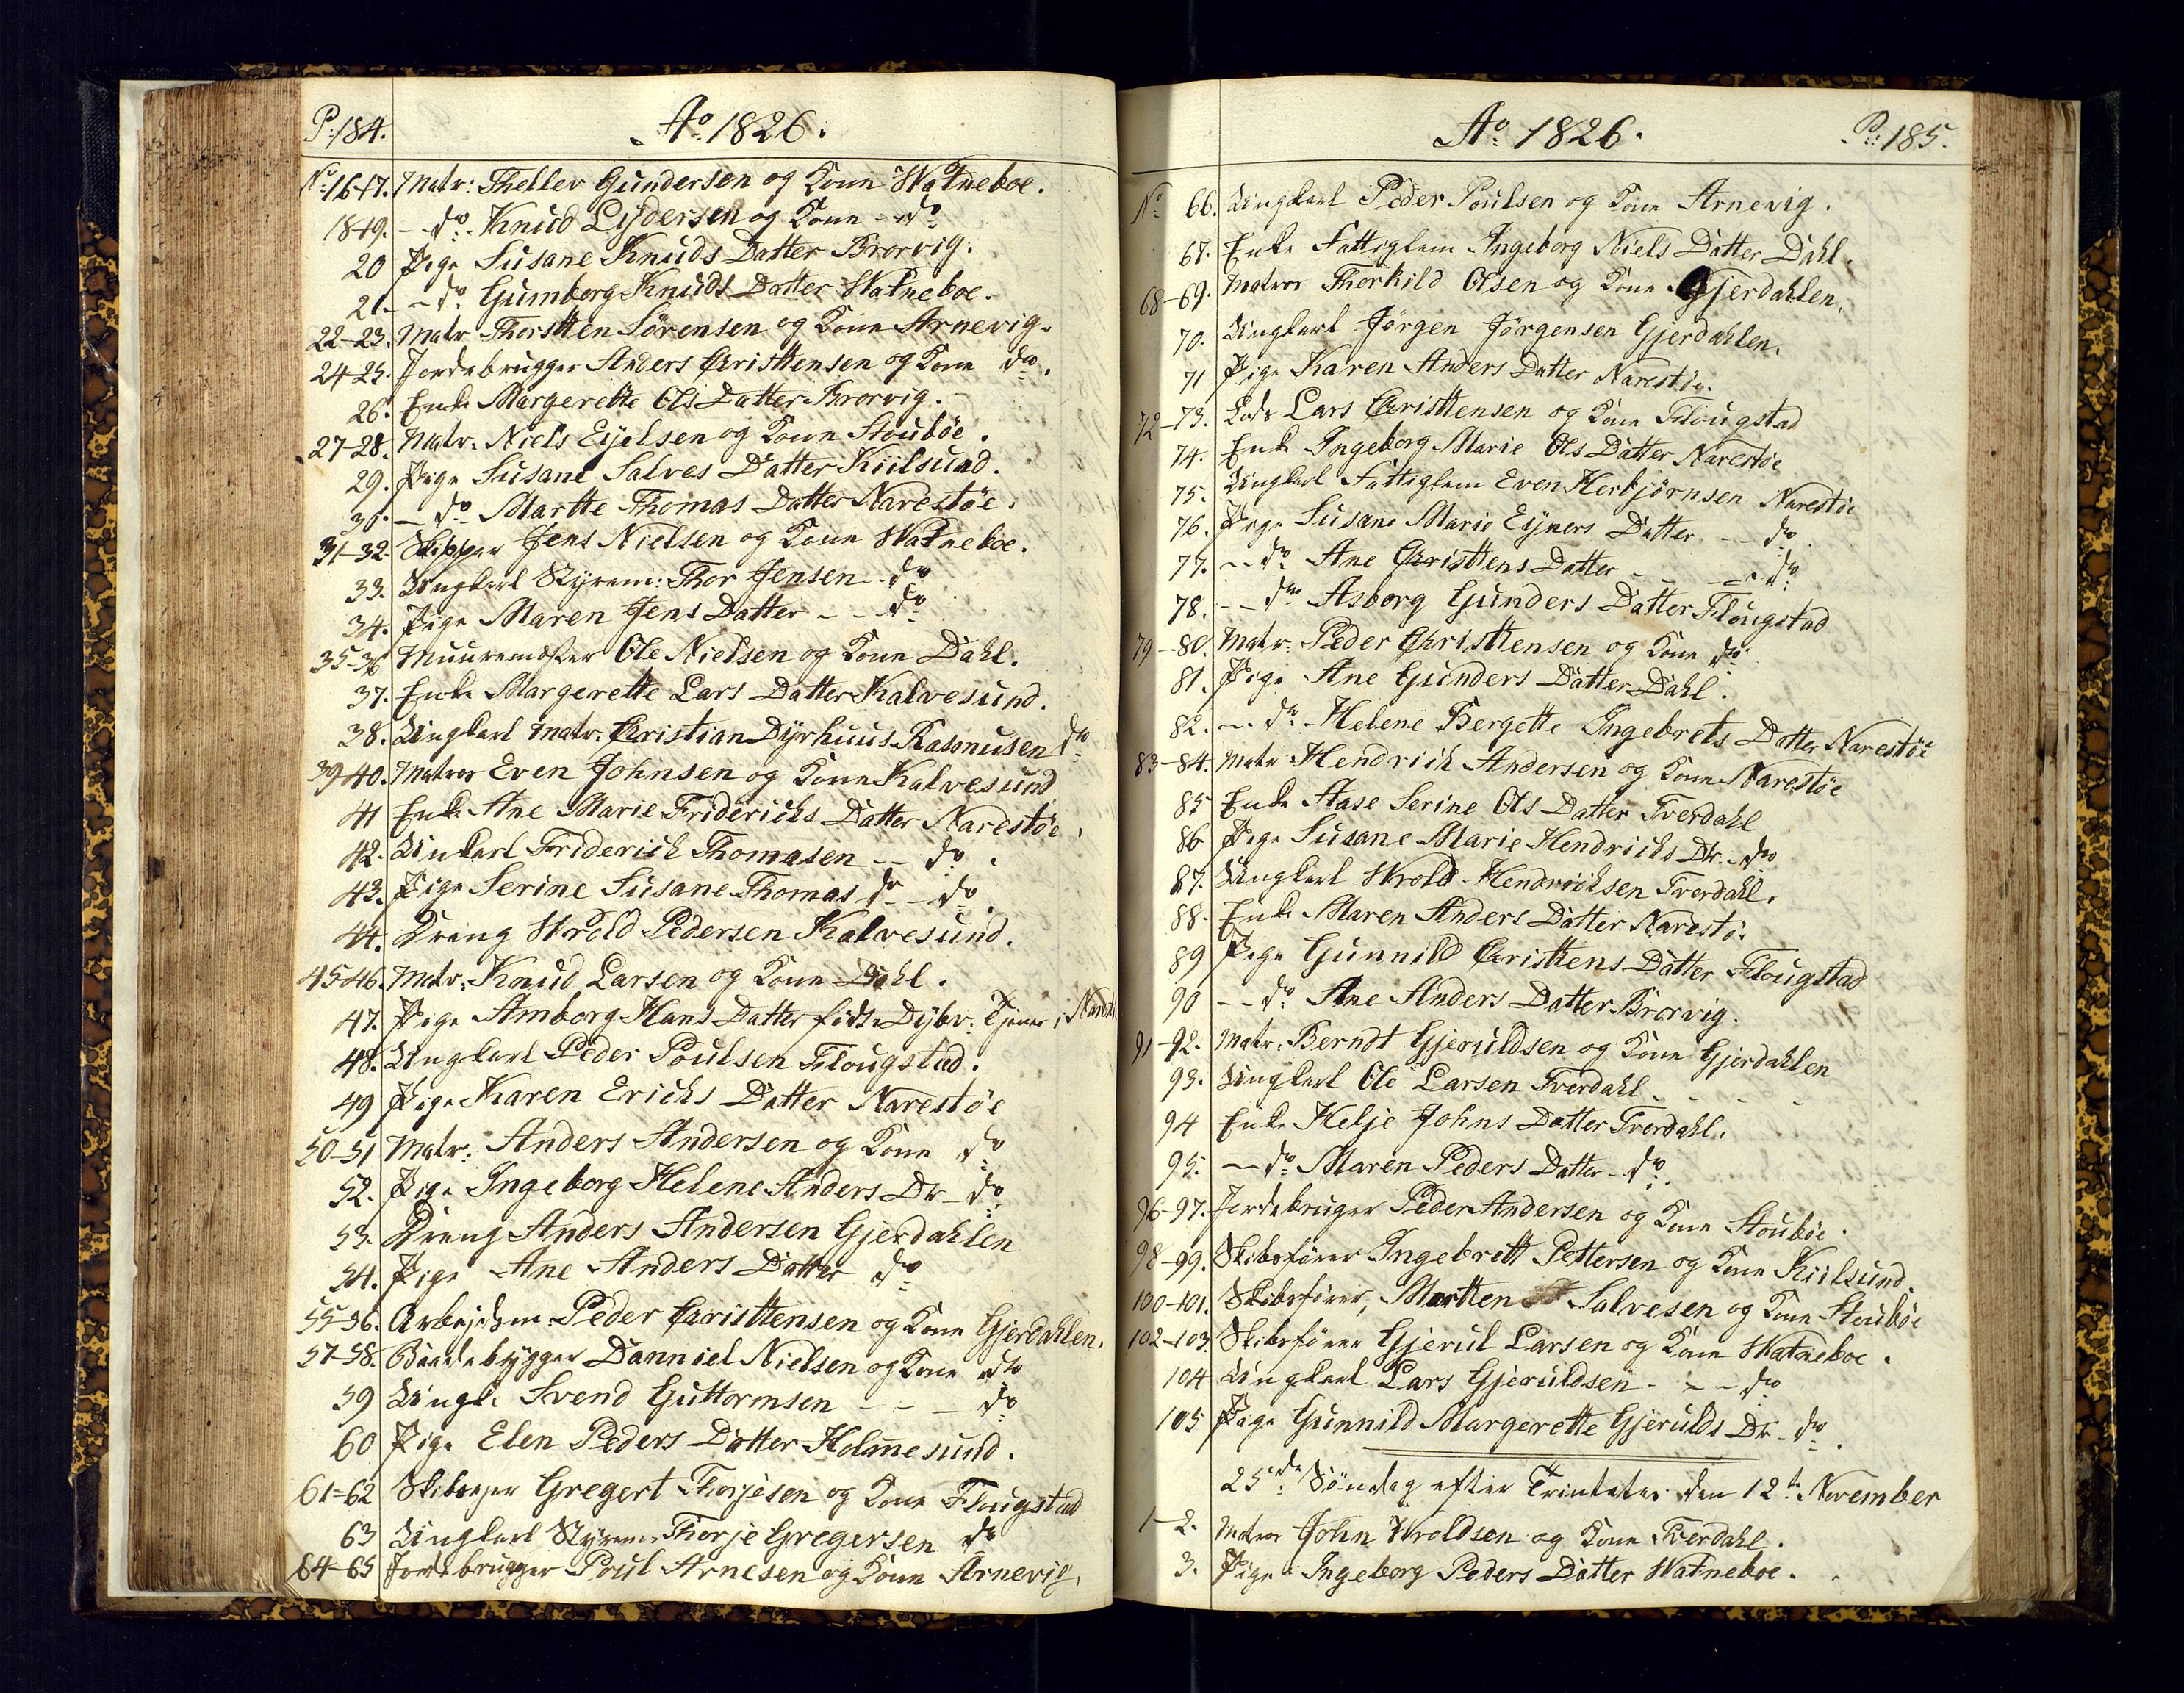 P: 184.
Ao 1826.
No 16-17. Matr: Theller Gundersen og Kone Watneboe.
18-19. - do Knud Lydersen og Kone - do
20 Pige Susane Knuds Datter Brorvig.
21. - do Gumborg Knuds Datter Watneboe.
22-23. Matr Thorsten Sörensen og Kone Arnevig.
24-25. Jordebrugger Anders Christensen og Kone do.
26. Enke Margerethe Ols Datter Brorvig.
27-28. Matr: Niels Eyelsen og Kone Stouböe.
29. Pige Susane Salves Datter Kiilsund.
30. - do Marthe Thomas Datter Narestöe.
31-32. Skipper Jens Nielsen og Kone Watneboe.
33. Ungkarl Styrm: Thor Jensen - do
34. Pige Maren Jens Datter - - do
35-36 Muuremester Ole Nielsen og Kone Dahl.
37. Enke Margerette Lars Datter Kalvesund.
38. Ungkarl Matr. Christian Dyrhuus Rasmusen do
39-40. Matros Even Johnsen og Kone Kalvesund
41 Enke Ane Marie Friderichs Datter Narestöe.
42. Unkarl Friderich Thomasen - - do.
43. Pige Serine Susane Thomas dr - do
44. Dreng Wrold Pedersen Kalvesund.
45-46. Matr: Knud Larsen og Kone Dahl.
47. Pige Amborg Hans Datter föds Dybv: tjener i Narest
48. Ungkarl Peder Poulsen Flougstad.
49 Pige Karen Erichs Datter Narestöe
50-51 Matr: Anders Andersen og Kone do
52. Pige Ingeborg Helene Anders Dr - do
53. Dreng Anders Andersen Gjerdahlen
54. Pige Ane Anders Datter do
55-56. Arbejdsm: Peder Christtensen og Kone Gjerdahlen.
57-58. Baadebygger Danniel Nielsen og Kone do
59 Ungk. Svend Guttormsen - - - do
60 Pige Elen Peders Datter Holmesund.
61=62 Skibsejer Gregert Thorjesen og Kone Flougstad
63 Ungkarl Styrm. Thorje Gregersen do
64-65 Jordebrugger Poul Arnesen og Kone Arnevig.
Ao 1826.
P: 185.
No 66. Ungkarl Peder Poulsen og Kone Arnevig.
67. Enke Fattiglem Ingeborg Niels Datter Dahl.
68-69. Matros Thorkild Olsen og Kone Gjerdahlen.
70. Ungkarl Jörgen Jörgensen Gjerdahlen.
71 Pige Karen Anders Datter Narestöe.
72-73. Lods Lars Christtensen og Kone Flougstad
74. Enke Ingeborg Marie Ols Datter Narestöe
75. Ungkarl Fattiglem Even Herbjörnsen Narestöe
76. Pige Susane Marie Eyners Datter - - do
77. - - do Ane Christtens Datter - - - do
78. - - do Asborg Gunders Datter Flougstad
79-80. Matr: Peder Christtensen og Kone do
81. Pige Ane Gunders Datter Dahl.
82. - - do Helene Bergette Ingebrets Datter Narestöe
83-84. Matr Hendrich Andersen og Kone Narestöe
85 Enke Aase Serine Ols Datter Tverdahl
86 Pige Susane Marie Hendrichs Dr. - do
87. Ungkarl Wrold Hendrichsen Tverdahl.
88. Enke Maren Anders Datter Narestö.
89 Pige Gunnild Christtens Datter Flougstad
90 - - do Ane Anders Datter Brorvig.
91-92. Matr: Berndt Gjeruldsen og Kone Gjerdahlen
93. Ungkarl Ole Larsen Tverdahl
94 Enke Helje Johns Datter Tverdahl.
95. - do Maren Peders Datter - do.
96-97. Jordebruger Peder Andersen og Kone Stouböe.
98-99. Skibsförer Ingebrett Pettersen og Kone Kiilsund.
100-101. Skibsförer, Mortten Salvesen og Kone Stouböe
102-103. Skibsförer Gjerul Larsen og Kone Watneboe.
104 Ungkarl Lars Gjeruldsen - - - do
105 Pige Gunnild Margerette Gjerulds Dr - do.
25de Söndag efter Trinitates den 12te November
1-2. Matros John Wroldsen og Kone Tverdahl.
3. Pige Ingeborg Peders Datter Watneboe.